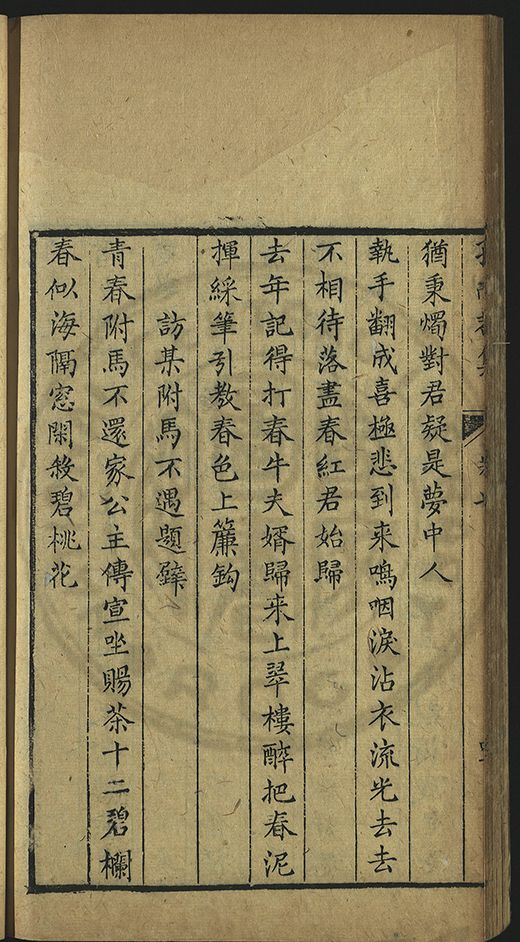 猶秉燭對君疑是夢中人
執手翻成喜極悲到来嗚咽淚沾衣流光去去
不相待落盡春紅君始歸
去年記得打春牛夫婿歸来上翠樓醉把春泥
揮綵筆引教春色上簾鈎
訪某附馬不遇題壁
青春附馬不還家公主傳宣坐賜茶十二碧欄
春似海隔窓閑殺碧桃花